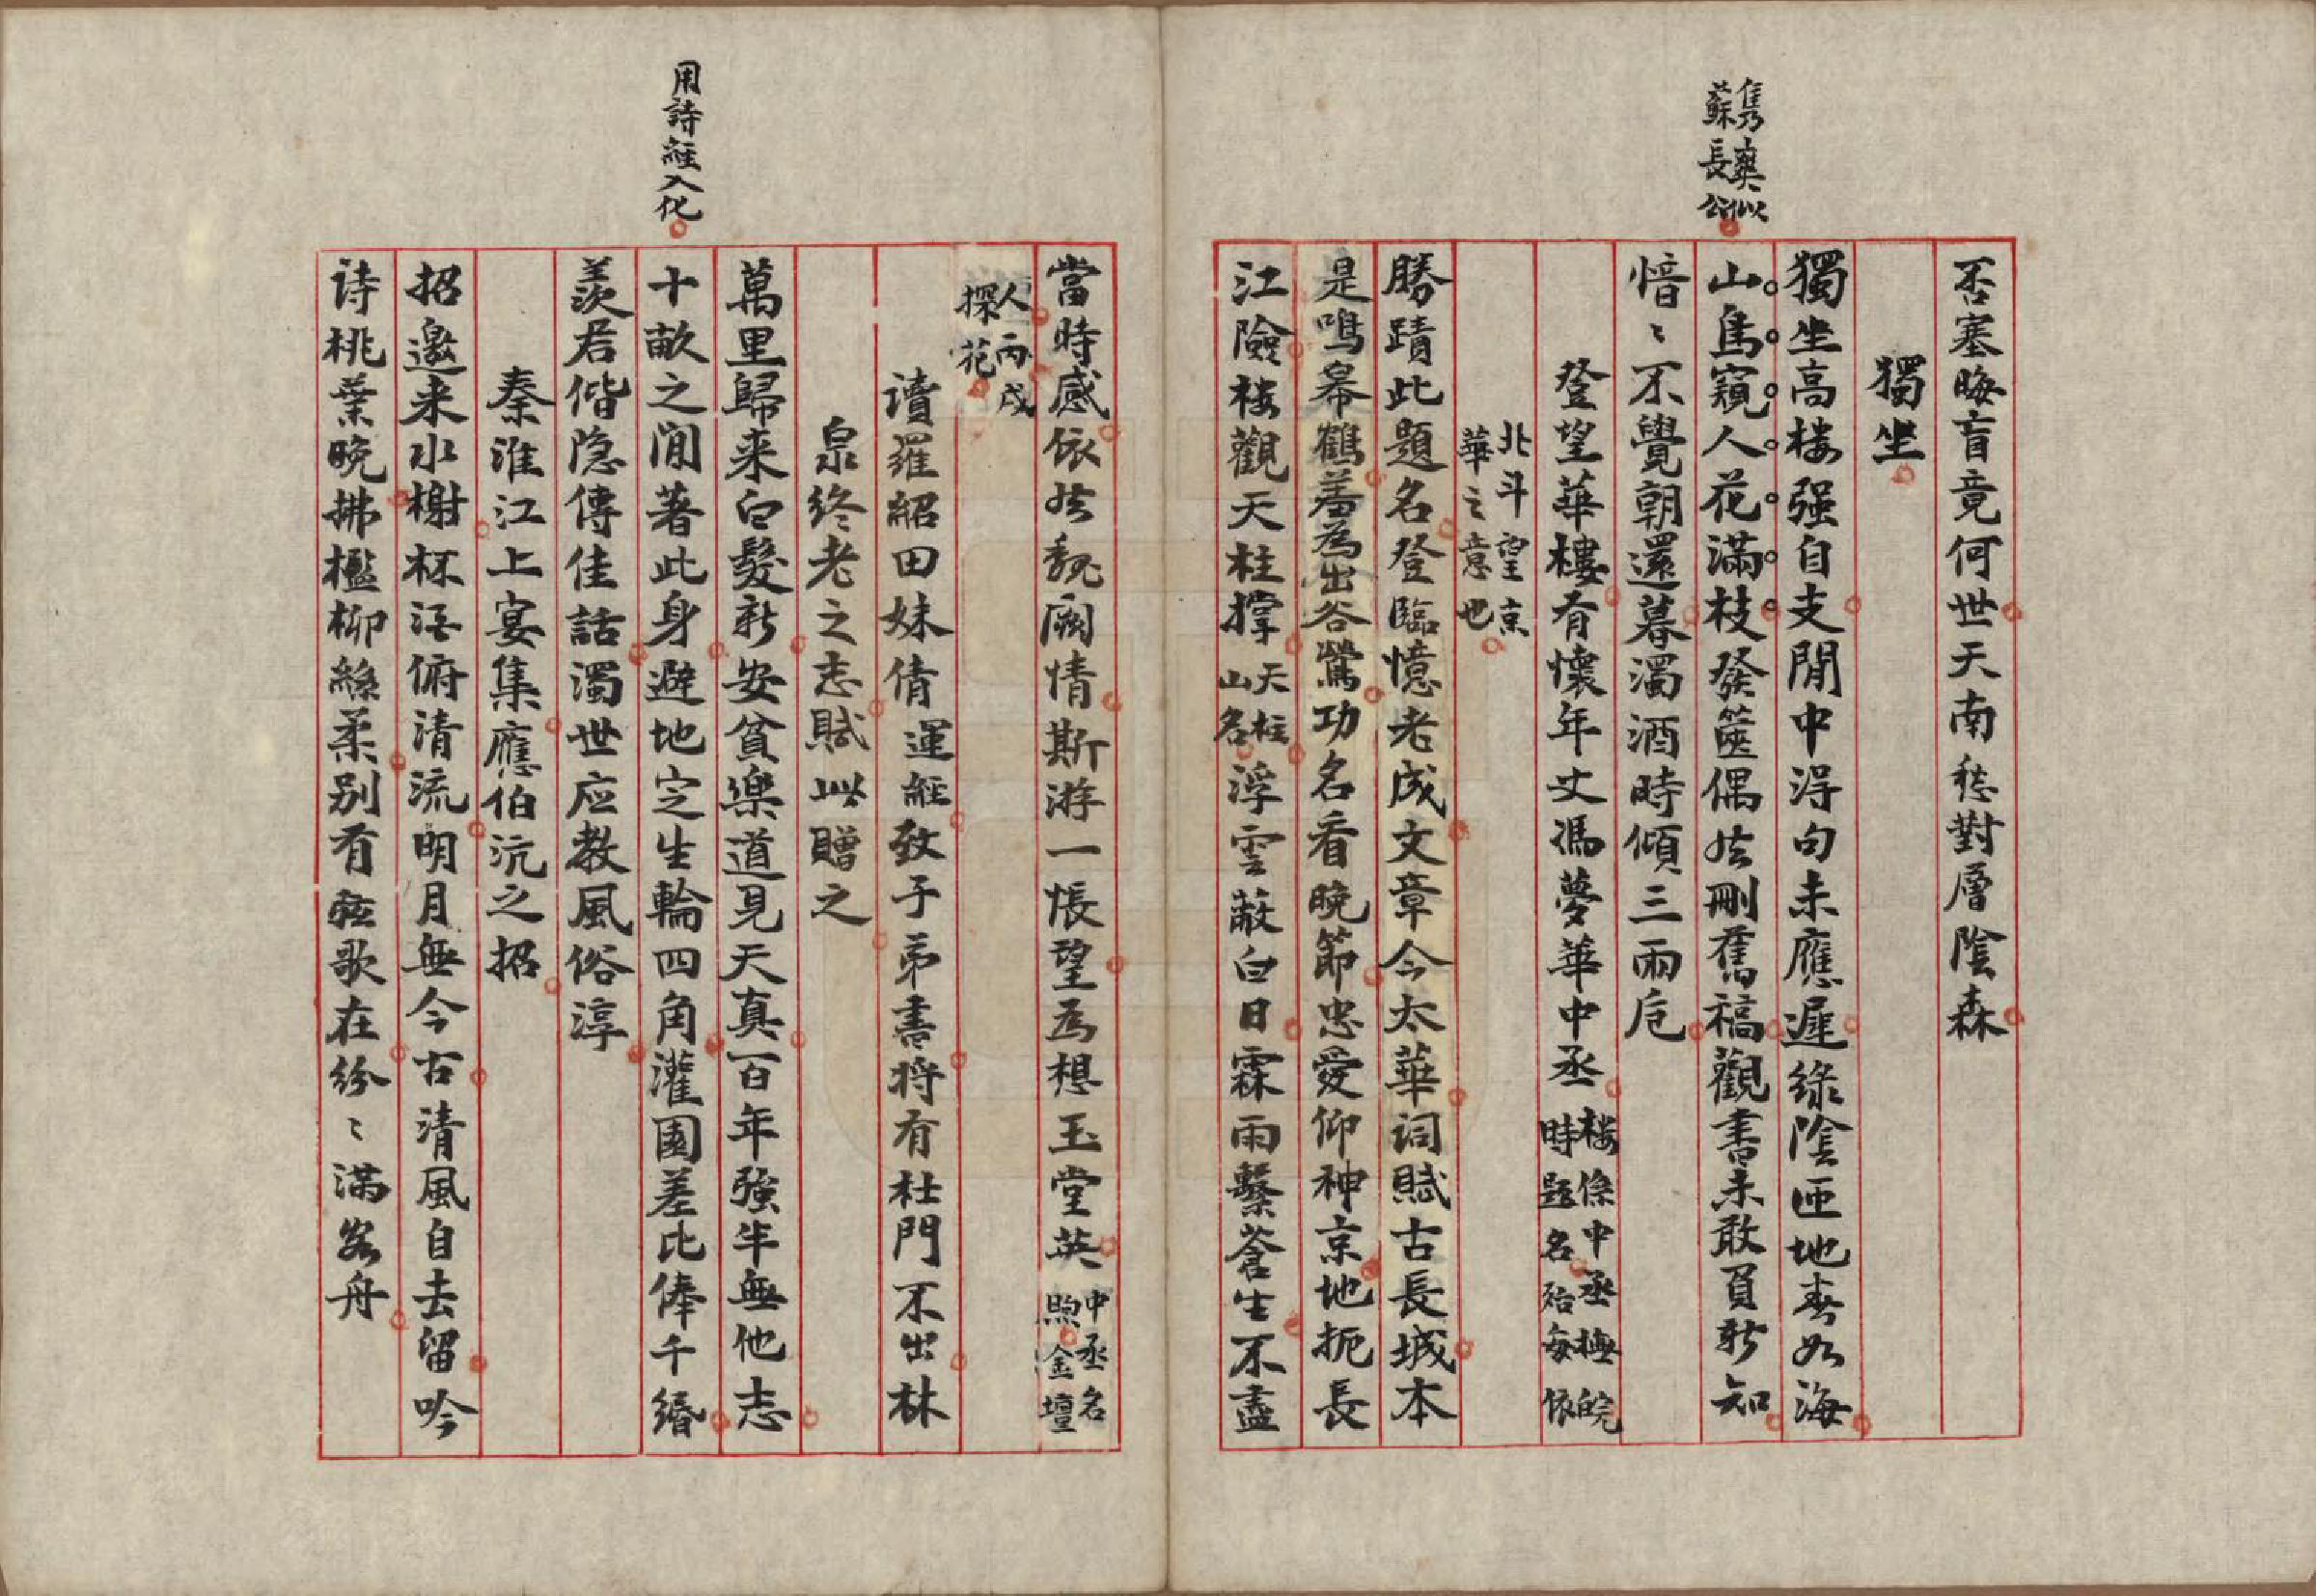 雋爽似
蘇長公
否塞晦盲竟何世天南愁對層陰森
獨坐
獨坐高楼强自支閒中淂句未應遲綠陰匝地春如海
山鳥窺人花滿枝發箧偶然刪舊稿觀書未敢負新知
愔〻不覺朝還暮濁酒時傾三兩卮
登望華樓有懷年丈馮夢華中丞
楼係中丞撫皖
時題名殆每依
北斗望京
華之意也
勝蹟此題名登臨憶老成文章今太華詞賦古長城本
是鳴皋鶴羞為出谷鶯功名看晚節忠愛仰神京地扼長
江險楼觀天柱撑
天柱
山名
浮雲蔽白日霖雨繫蒼生不盡
用詩經入化
當時感依然魏闕情斯游一悵望為想玉堂英
中丞名
煦金壇
人丙戌
探花
讀羅紹田妹倩運經致子弟書将有杜門不出林
泉終老之志賦此贈之
萬里歸来白髮新安貧樂道見天真百年強半無他志
十畝之閒著此身避地定生輪四角灌園差比俸千緡
羨君偕隐傳佳話濁世应教風俗淳
秦淮江上宴集應伯沆之招
招邀来水榭杯酒俯清流明月無今古清風自去留吟
诗桃葉晚拂檻柳絲柔别有弦歌在紛〻满客舟